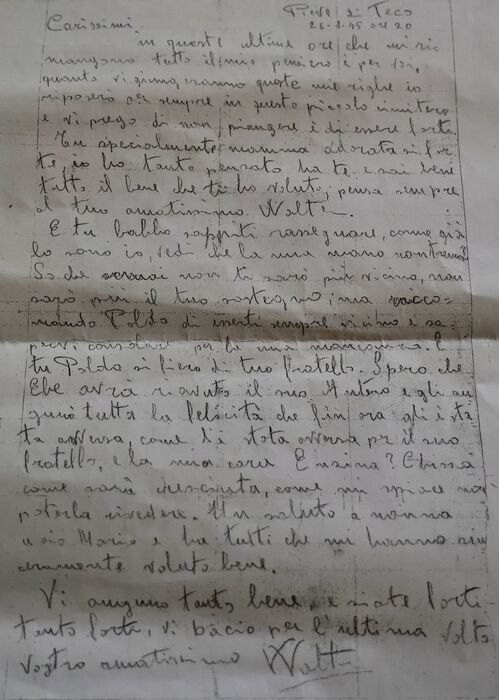 Pieve di Teco
26-1-45 ore 20
Carissimi
in queste ultime ore che mi ri
mangono tutto il mio pensiero è per voi,
quanto vi giungeranno queste mie righe io
riposerò per sempre in questo piccolo cimitero
e vi prego di non piangere e di essere forti.
Tu specialmente mamma adorata sii for
te, io ho tanto pensato ha te e sai bene
tutto il bene che ti ho voluto, pensa sempre
al tuo amatissimo Walter.
E tu babbo sappiti rassegnare, come già
lo sono io, vedi che la mia mano non trema?
So che ormai non ti sarò più vicino, non
sarò più il tuo sostegno, ma racco=
mando Poldo di esserti sempre vicino e sa
pervi consolare per la mia mancanza. E
tu Poldo sii fiero di tuo fratello. Spero che
Ebe avrà riavuto il suo Arturo e gli au
guro tutta la felicità che fin ora gli è sta
ta avversa, come li è stata avversa per il suo
fratello, e la mia cara Enzina? Chissà
come sarà cresciuta, come mi spiace non
poterla rivedere. Un saluto a nonna
a zio Mario e ha tutti che mi hanno sin
ceramente voluto bene.
Vi auguro tanto bene, e siate forti
tanto forti, vi bacio per l'ultima volta
vostro amatissimo Walter